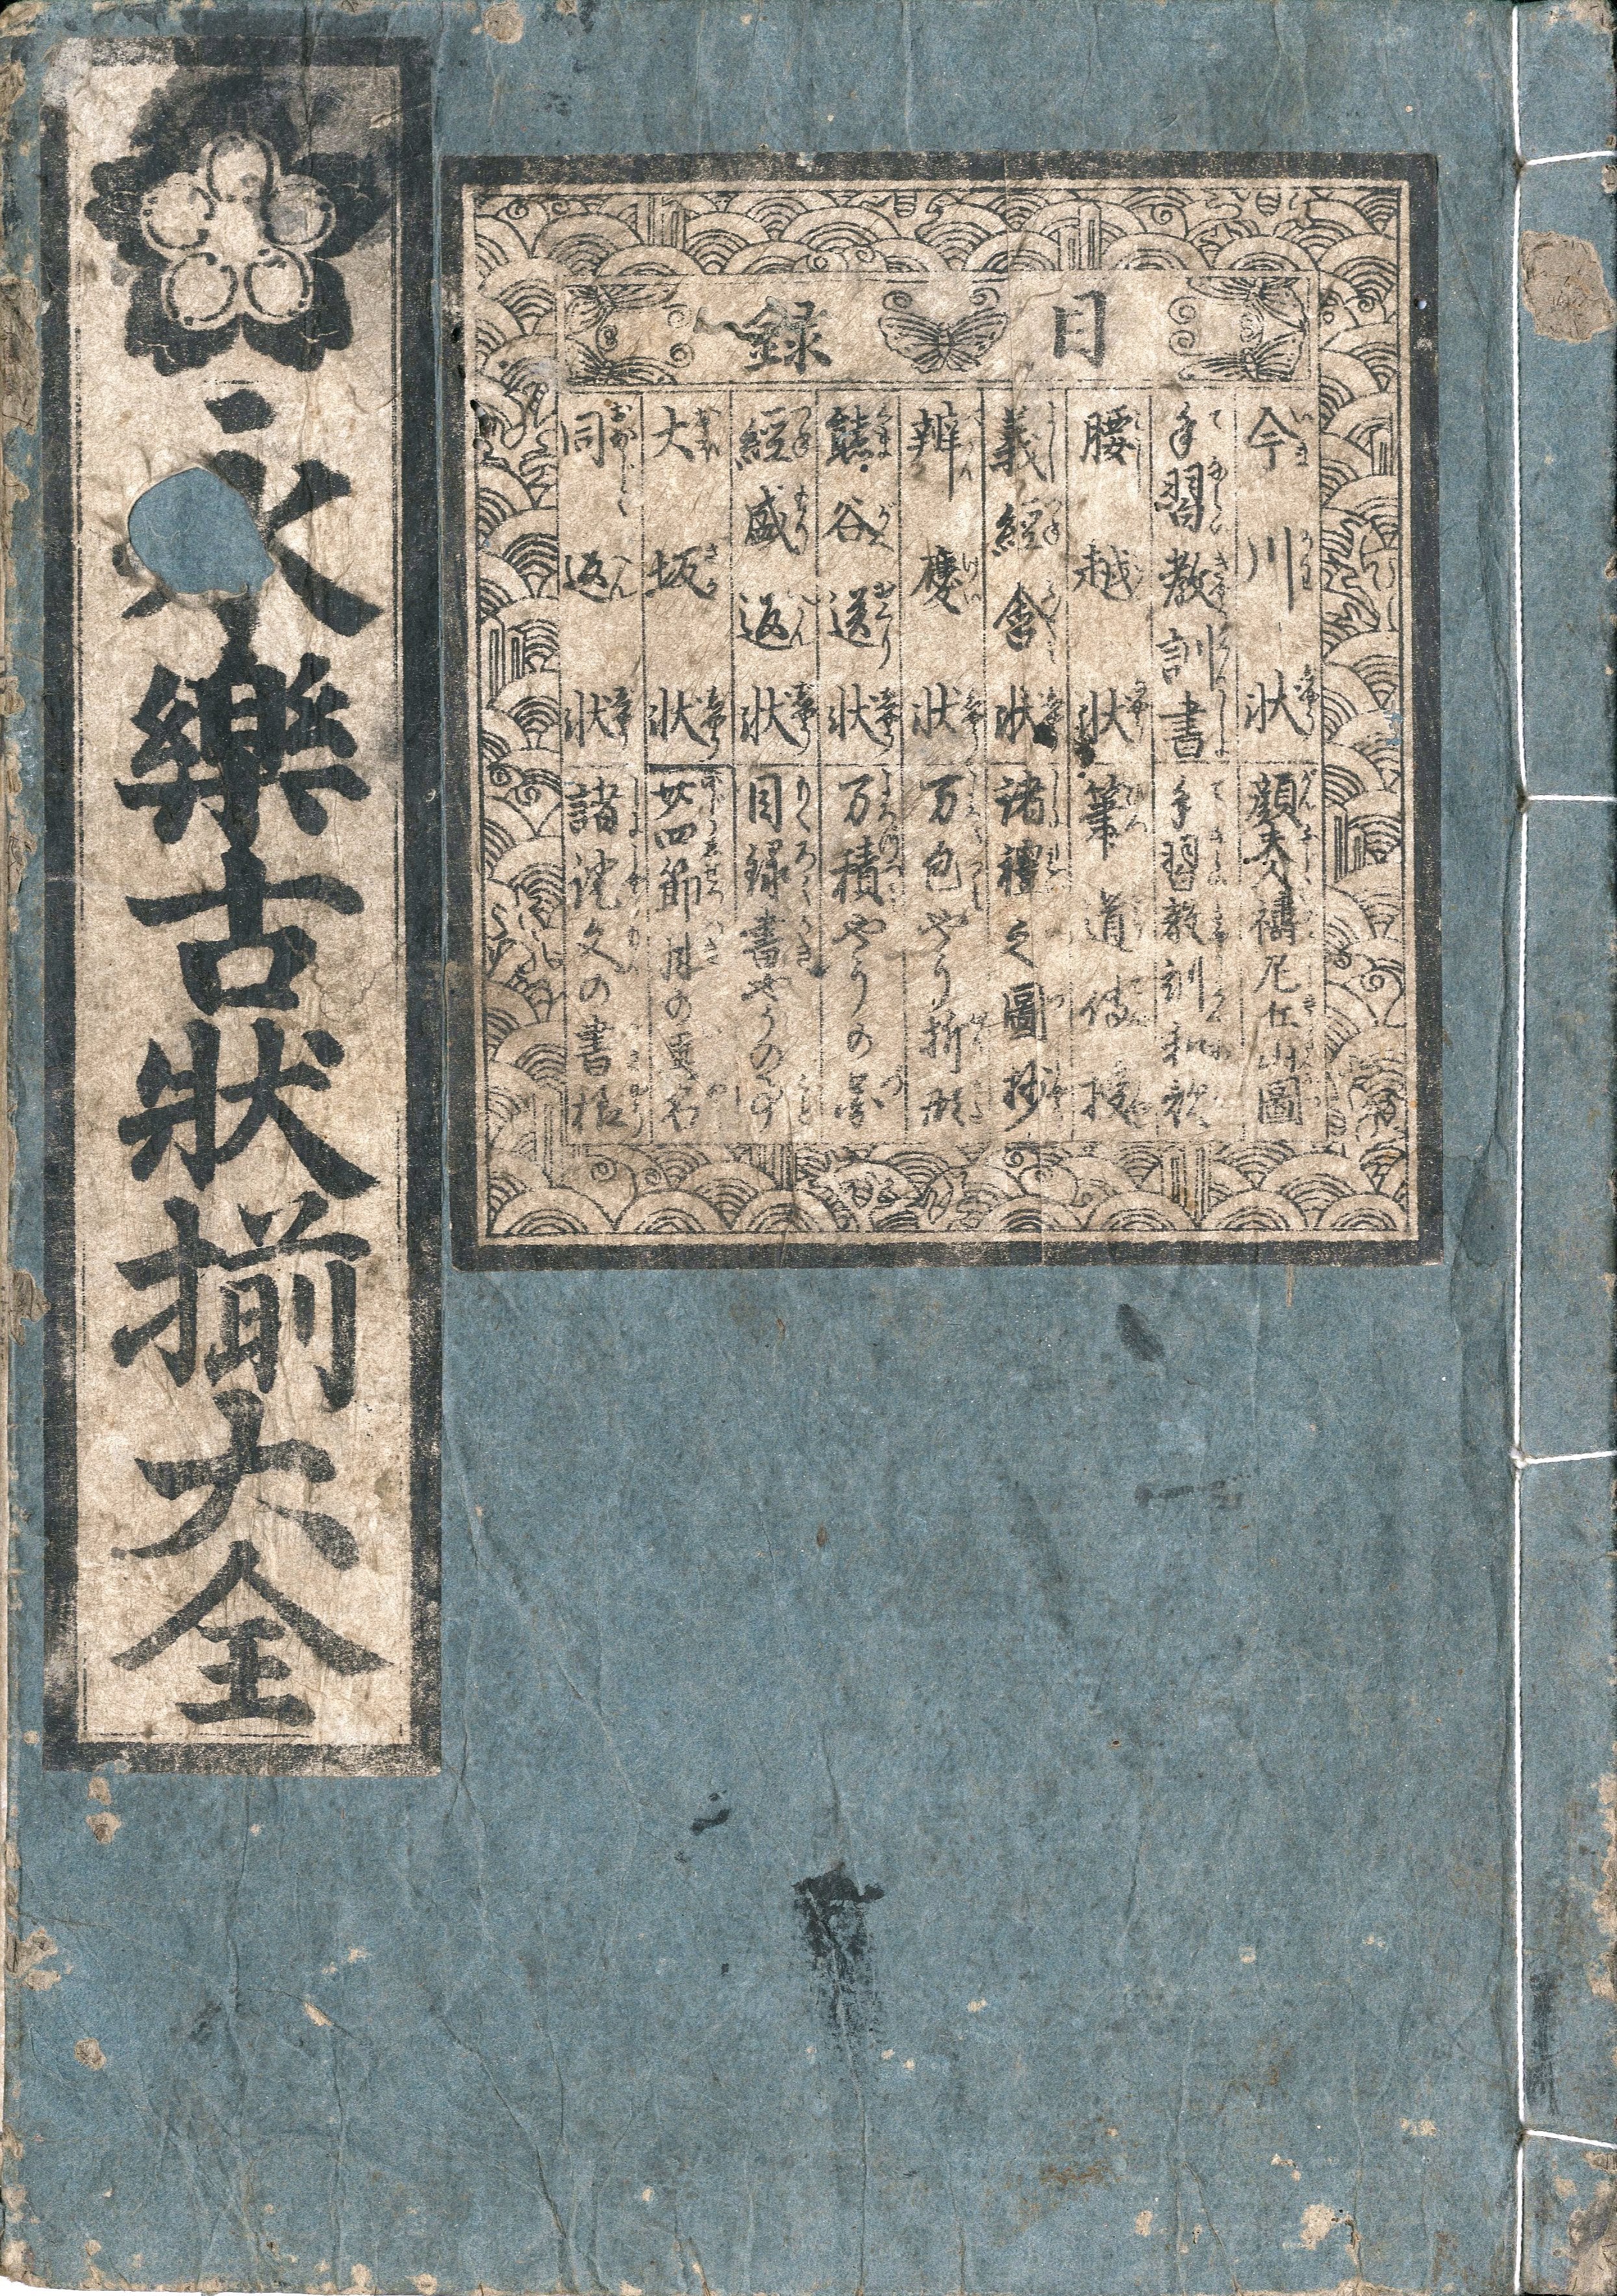 永樂古状揃大全
目録
今川状
手習教訓書
腰越状
義經含状
辨慶状
熊谷送状
經盛返状
大坂状
同返状
顔夫人禱尼丘山圖
手習教訓和歌
筆道傳授
諸禮之圖抄
万包やう折形
万積やうの
目録書やうの
廿四節月の異名
諸證文の書様